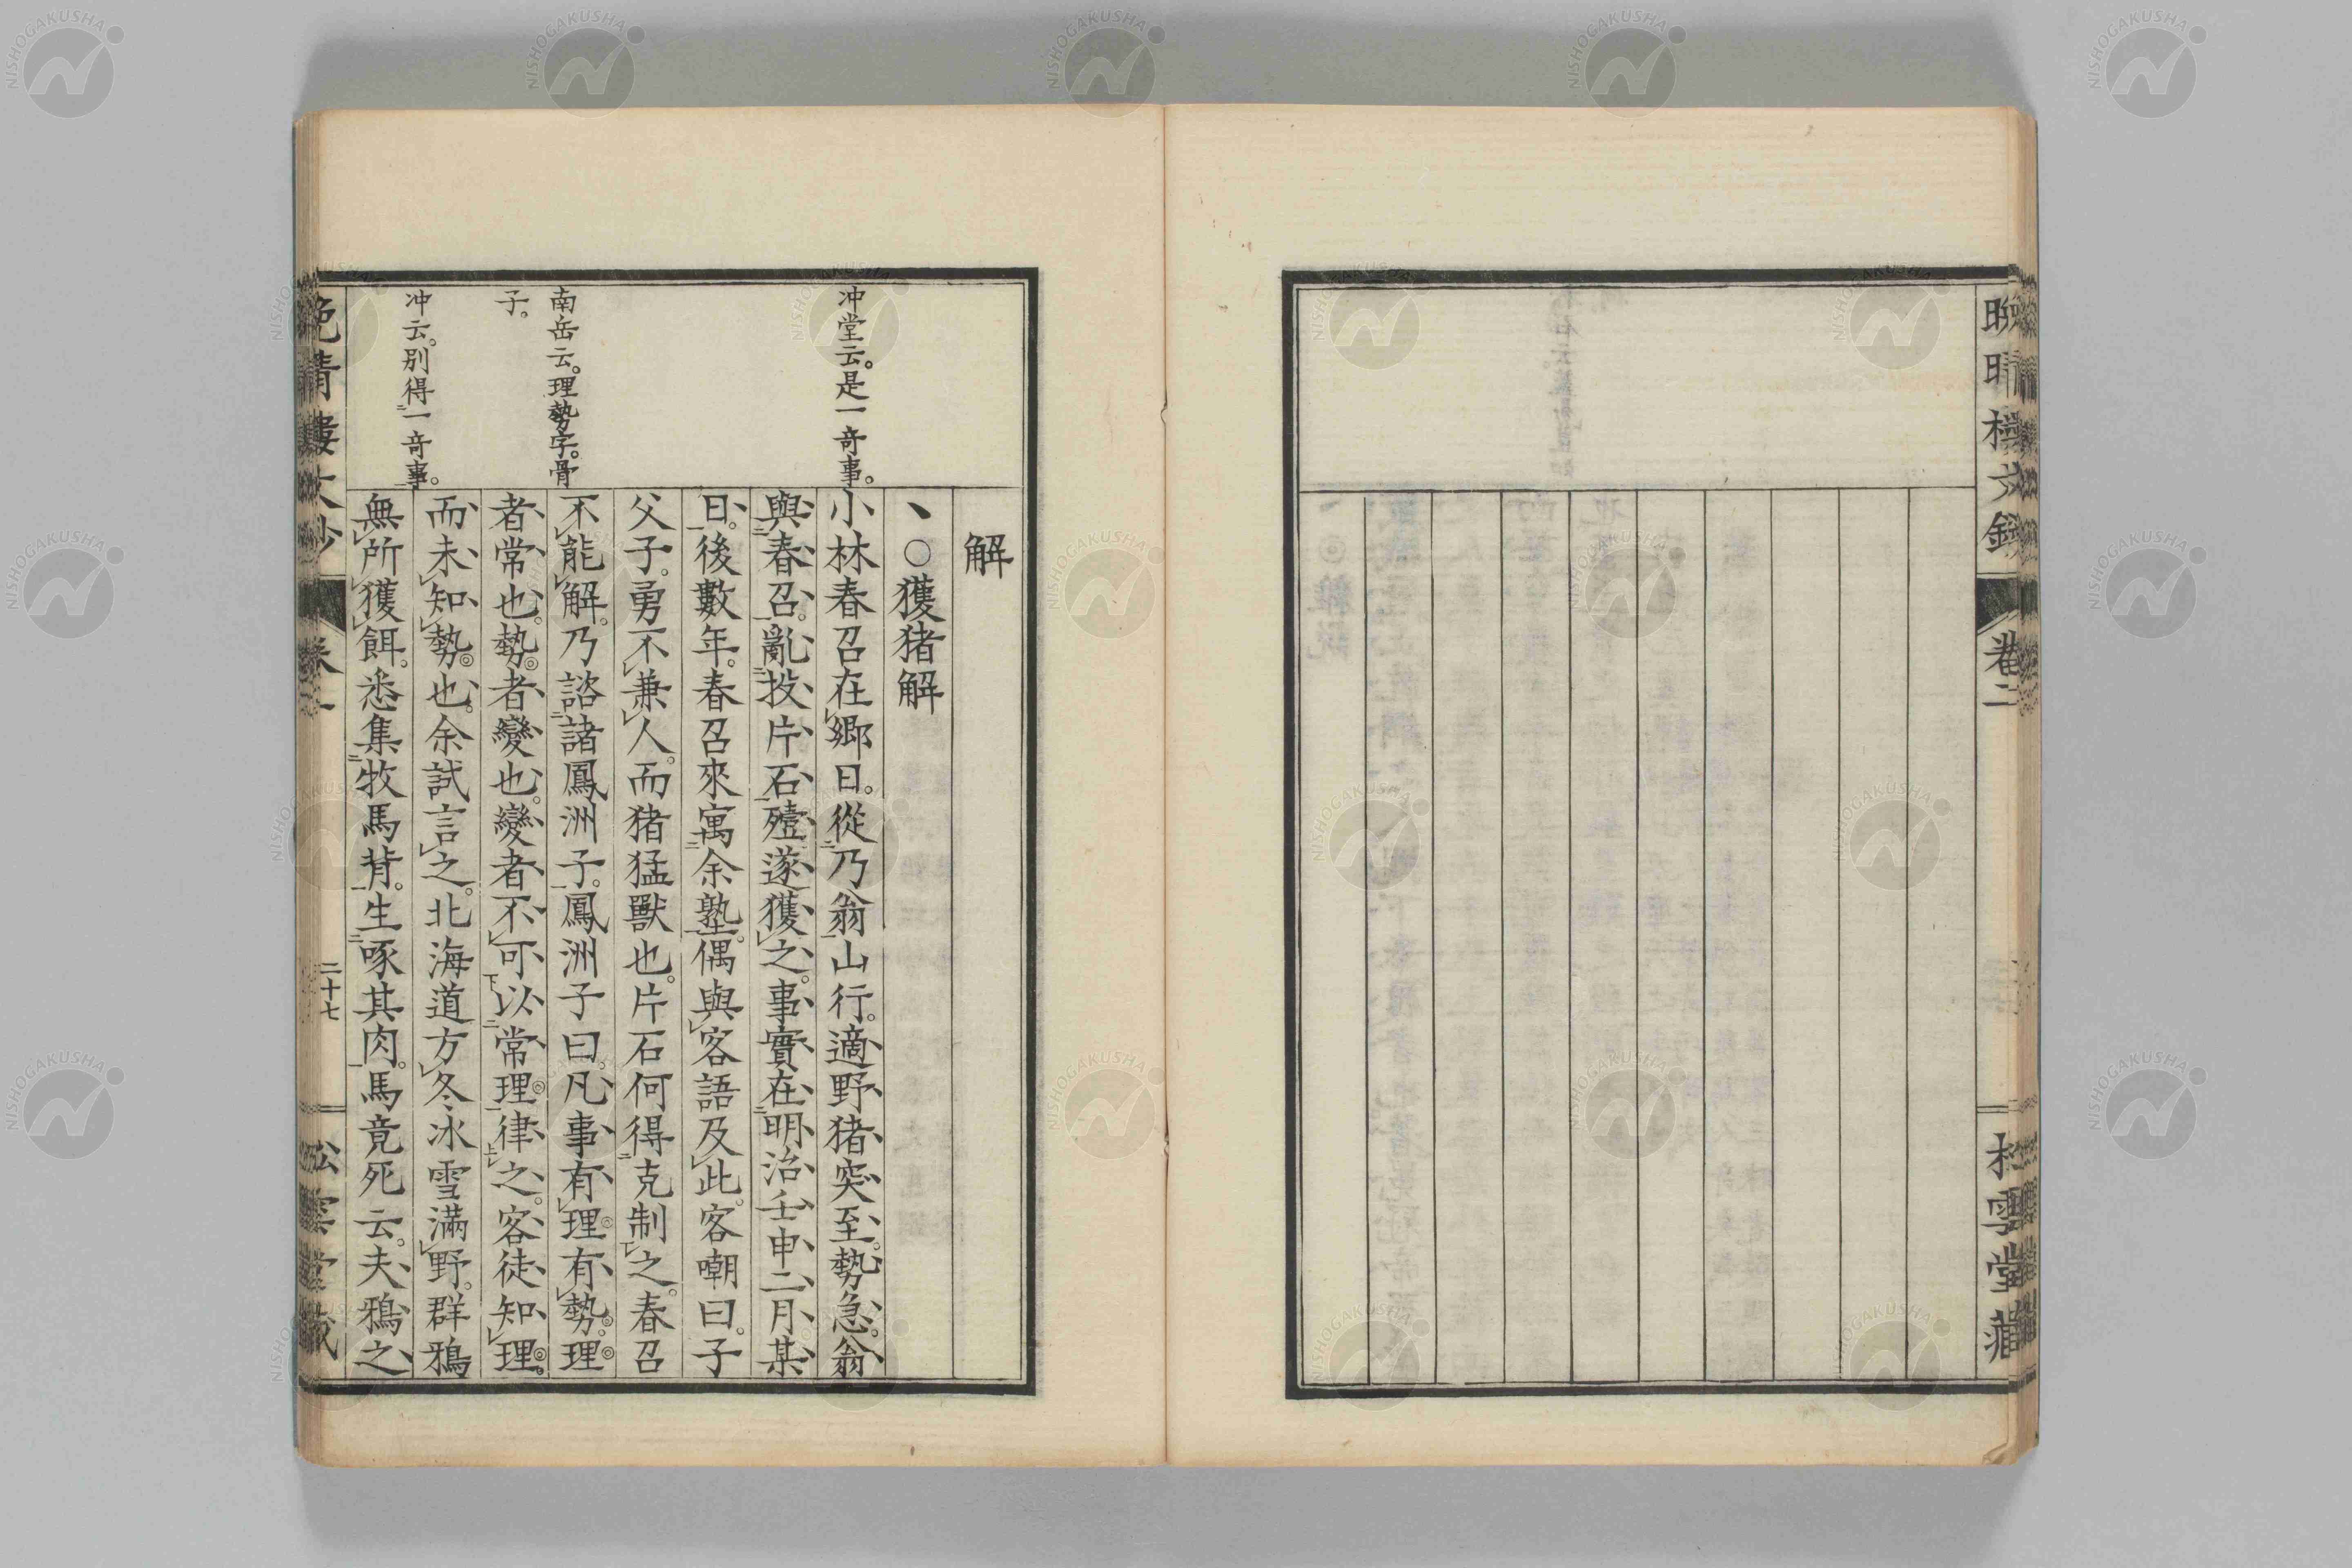 卷二
解
、○獲猪解
小林春召在鄉日。從乃翁山行。適野猪突至。勢急。翁
與春召。亂投片石殪。遂獲之。事實在明治壬申二月某
日。後數年。春召來寓余塾。偶與客語及此。客嘲曰。子
父子。勇不兼人。而猪猛獸也。片石何得克制之。春召
不能解。乃諮諸鳳洲子。鳳洲子曰。凡事有理有勢。理
者常也。勢者變也。變者不可以常理律之。客徒知理。
而未知勢也。余試言之。北海道方冬冰雪滿野。群鴉
無所獲餌。悉集牧馬背。生啄其肉。馬竟死云。夫鴉之
冲堂云。是一奇事。
南岳云。理勢字。骨
子。
冲云。別得一奇事。
二十七
NISHOGAKUSHA